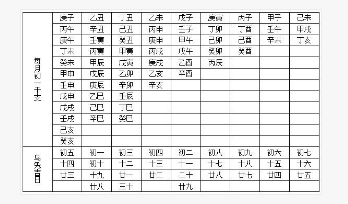 每月初一干支
庚子 乙丑 丁丑 乙未 戊子 庚寅 丙子 甲子 己未
丙午 辛丑 己丑 丙申 壬子 丁卯 丁酉 壬午 甲戌
庚午 壬寅 癸丑 庚申 甲午 己卯 辛未 丁亥
丁未 丙寅 甲寅 丙戌 戊午 癸卯 癸酉
癸未 甲辰 戊寅 庚戌 乙酉 丙辰
甲申 戊辰 乙卯 乙亥 辛酉
壬申 庚辰 辛卯 辛亥
戊申 乙巳 壬辰
戊戌 己巳 丁巳
壬戌 辛巳 癸巳
己亥
癸亥
乌兔吉日
初五 初一 初三 初四 初二 初八 初九 初六 初七
十四 初十 十二 十三 十一 十七 十八 十五 十六
廿三 十九 廿一 廿二 二十 廿六 廿七 廿四 廿五
廿八 三十 廿九